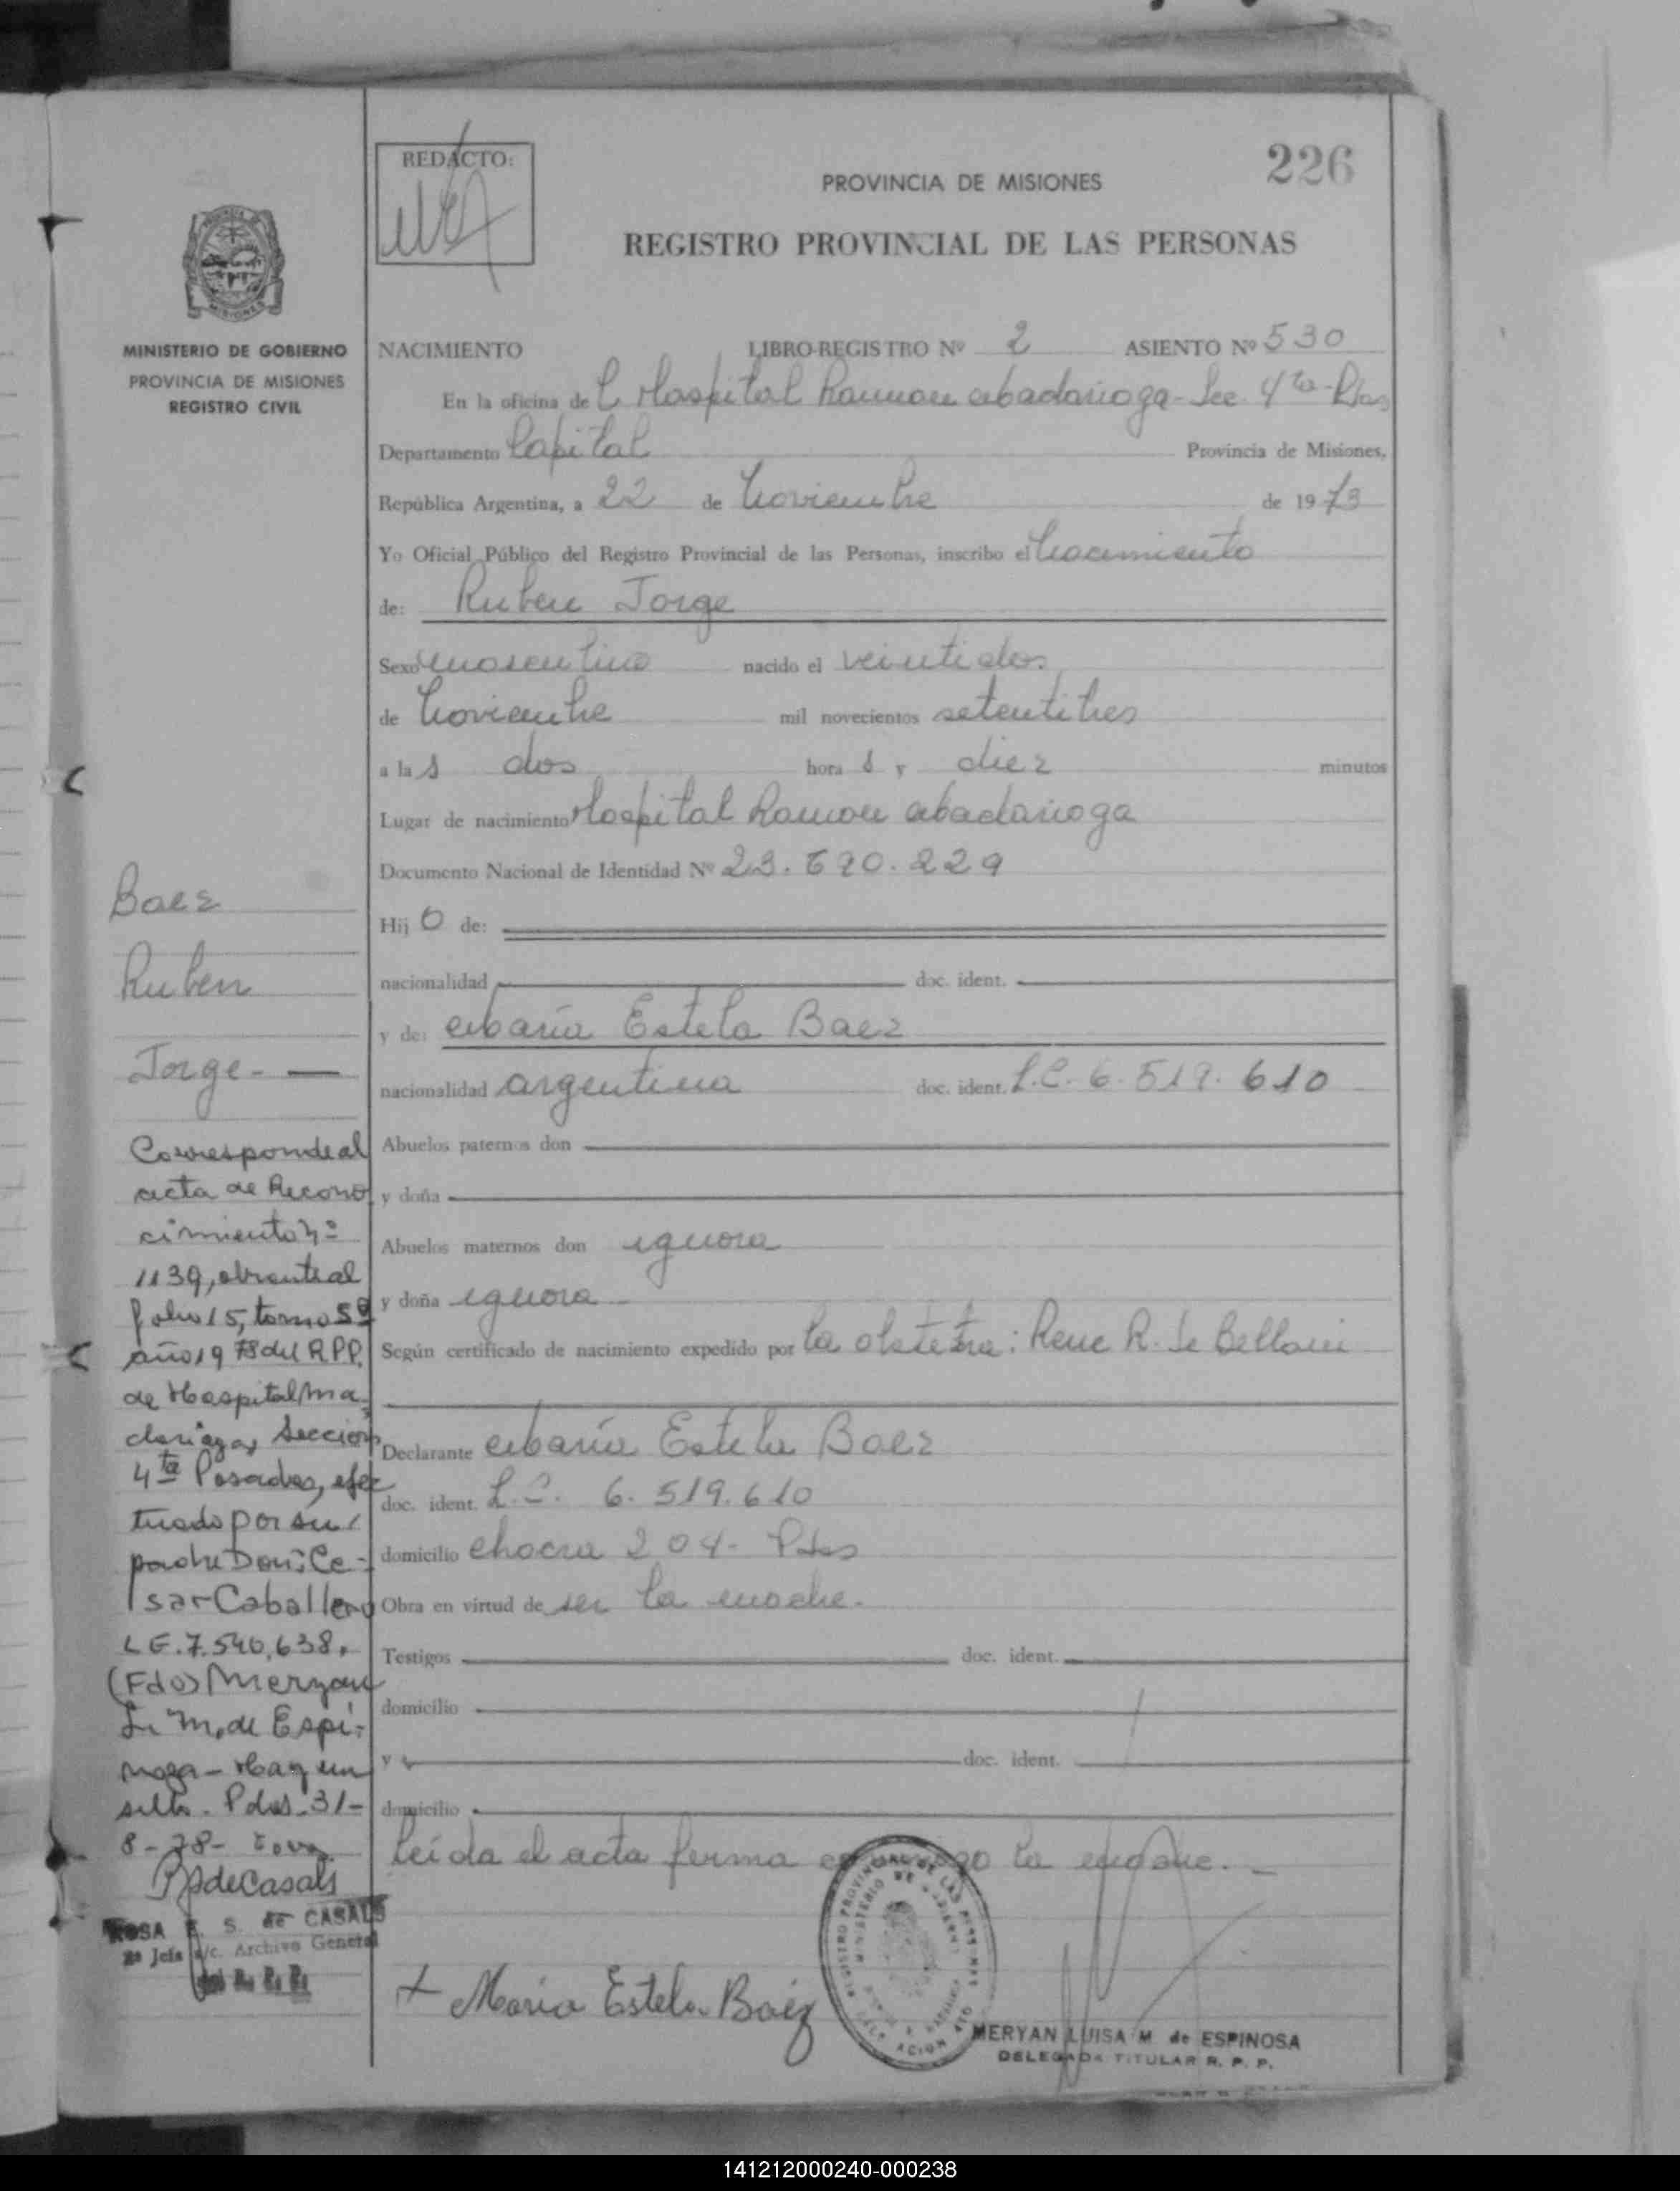 REDACTO:
226
PROVINCIA DE MISIONES
REGISTRO PROVINCIAL DE LAS PERSONAS
MISIONES
MINISTERIO DE GOBIERNO
PROVINCIA DE MISIONES
REGISTRO CIVIL
NACIMIENTO LIBRO-REGISTRO Nº 2 ASIENTO Nº 530
En la oficina del Hospital Ramon Madariaga - Sec. 4ta - Pdas
Departamento Capital Provincia de Misiones,
República Argentina, a 22 de Noviembre de 1973
Yo Oficial Público del Registro Provincial de las Personas, inscribo el Nacimiento
de: Ruben Jorge
Sexo masculino nacido el veintidos
de Noviembre mil novecientos setentitres
a las dos horas y diez minutos
Lugar de nacimiento Hospital Ramon Madariaga
Documento Nacional de Identidad Nº 23.690.229
Hijo de:
nacionalidad doc. ident.
y de: Maria Estela Baez
nacionalidad argentina doc. ident. L.C. 6.519.610
Abuelos paternos don
y doña
Abuelos maternos don ignora
y doña ignora
Según certificado de nacimiento expedido por la obstetra: Rene R. de
Declarante Maria Estela Baez
doc. ident. L.C. 6.519.610
domicilio chacra 204 - Pdas
Obra en virtud de ser la madre.
Testigos doc. ident.
domicilio
y doc. ident.
domicilio
Leida el acta firma la madre.
Maria Estela Baez
MERYAN LUISA M. de ESPINOSA
DELEGADA TITULAR R. P. P.
Baez
Ruben
Jorge. -
Corresponde al
acta de Recono
cimiento nº
1139, obrante al
folio 15, tomo 5º
año 1978 del R.P.P.
de Hospital Ma
dariaga, Seccion
4ta Posadas, efec
tuado por su
padre Don: Ce-
sar Caballero
L.E. 7.540.638.
(Fdo) Meryan
L. M. de Espi-
noza - Hay un
sello. Pdas. 31-
8-78-
ROSA E. S. de CASALS
2a Jefa a/c. Archivo General
del R. P. P.
141212000240-000238